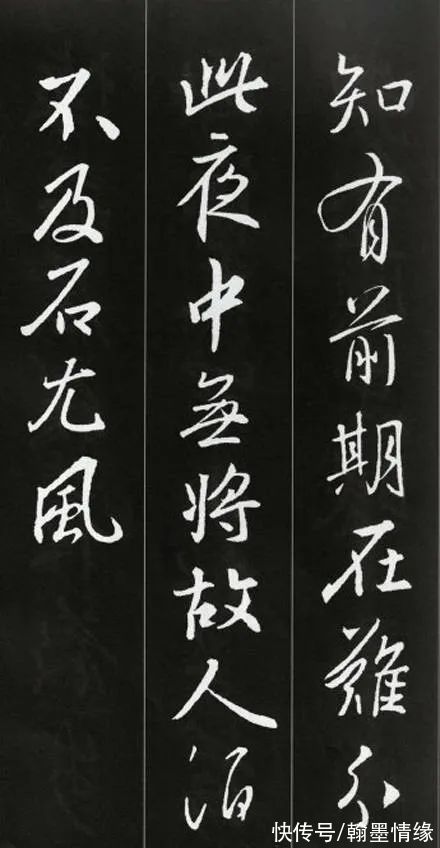 知有前期在難分
此夜中無將故人酒
不及石尤風
快传号/翰墨情缘